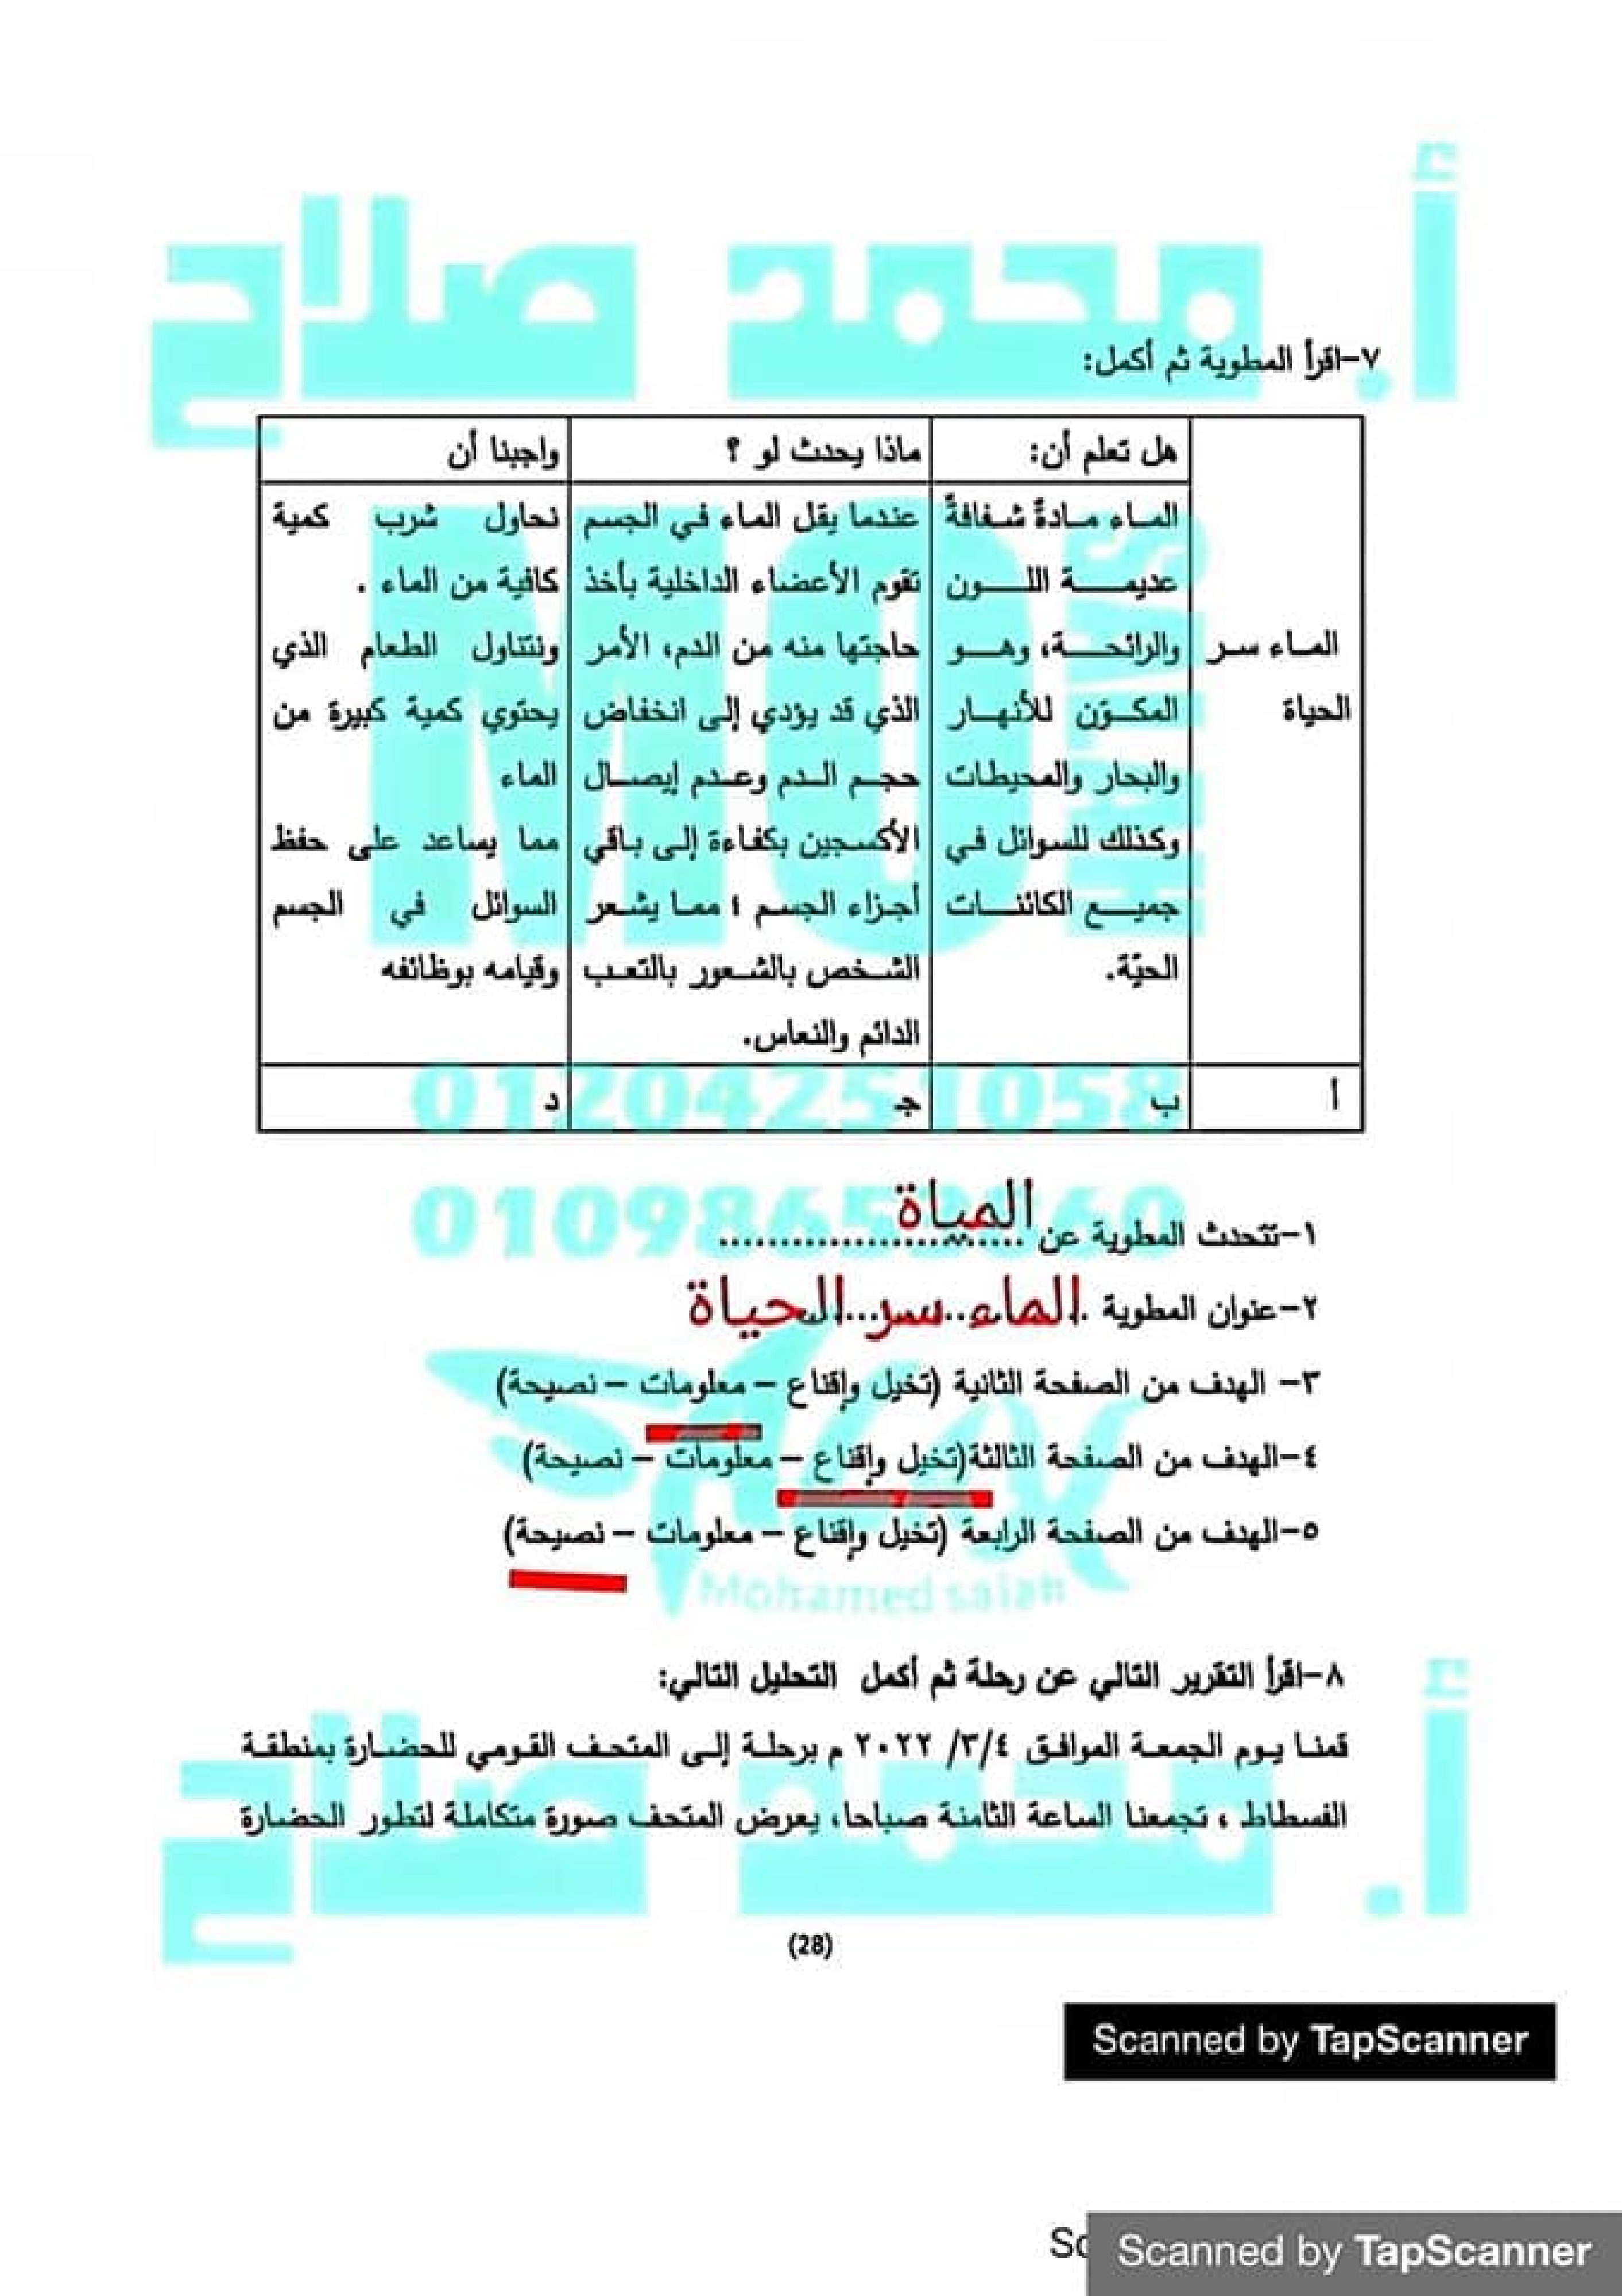 أ. محمد صلاح
٧-اقرأ المطوية ثم أكمل:
هل تعلم أن:
ماذا يحدث لو ؟
واجبنا أن
الماء سر
الحياة
الماء مادةٌ شفافةٌ
عديمة اللون
والرائحة، وهو
المكوّن للأنهار
والبحار والمحيطات
وكذلك للسوائل في
جميع الكائنات
الحيّة.
عندما يقل الماء في الجسم
تقوم الأعضاء الداخلية بأخذ
حاجتها منه من الدم، الأمر
الذي قد يؤدي إلى انخفاض
حجم الدم وعدم إيصال
الأكسجين بكفاءة إلى باقي
أجزاء الجسم ؛ مما يشعر
الشخص بالشعور بالتعب
الدائم والنعاس.
نحاول شرب كمية
كافية من الماء .
ونتناول الطعام الذي
يحتوي كمية كبيرة من
الماء
مما يساعد على حفظ
السوائل في الجسم
وقيامه بوظائفه
أ
ب
جـ
د
MO
01204251058
١-تتحدث المطوية عن المياة
٢-عنوان المطوية الماء سر الحياة
٣- الهدف من الصفحة الثانية (تخيل وإقناع – معلومات – نصيحة)
٤-الهدف من الصفحة الثالثة(تخيل وإقناع – معلومات – نصيحة)
٥-الهدف من الصفحة الرابعة (تخيل وإقناع – معلومات – نصيحة)
Mohamed salah
٨-اقرأ التقرير التالي عن رحلة ثم أكمل التحليل التالي:
قمنا يوم الجمعة الموافق ٣/٤/ ٢٠٢٢ م برحلة إلى المتحف القومي للحضارة بمنطقة
الفسطاط ، تجمعنا الساعة الثامنة صباحا، يعرض المتحف صورة متكاملة لتطور الحضارة
أ. محمد صلاح
(28)
Scanned by TapScanner
Sc
Scanned by TapScanner